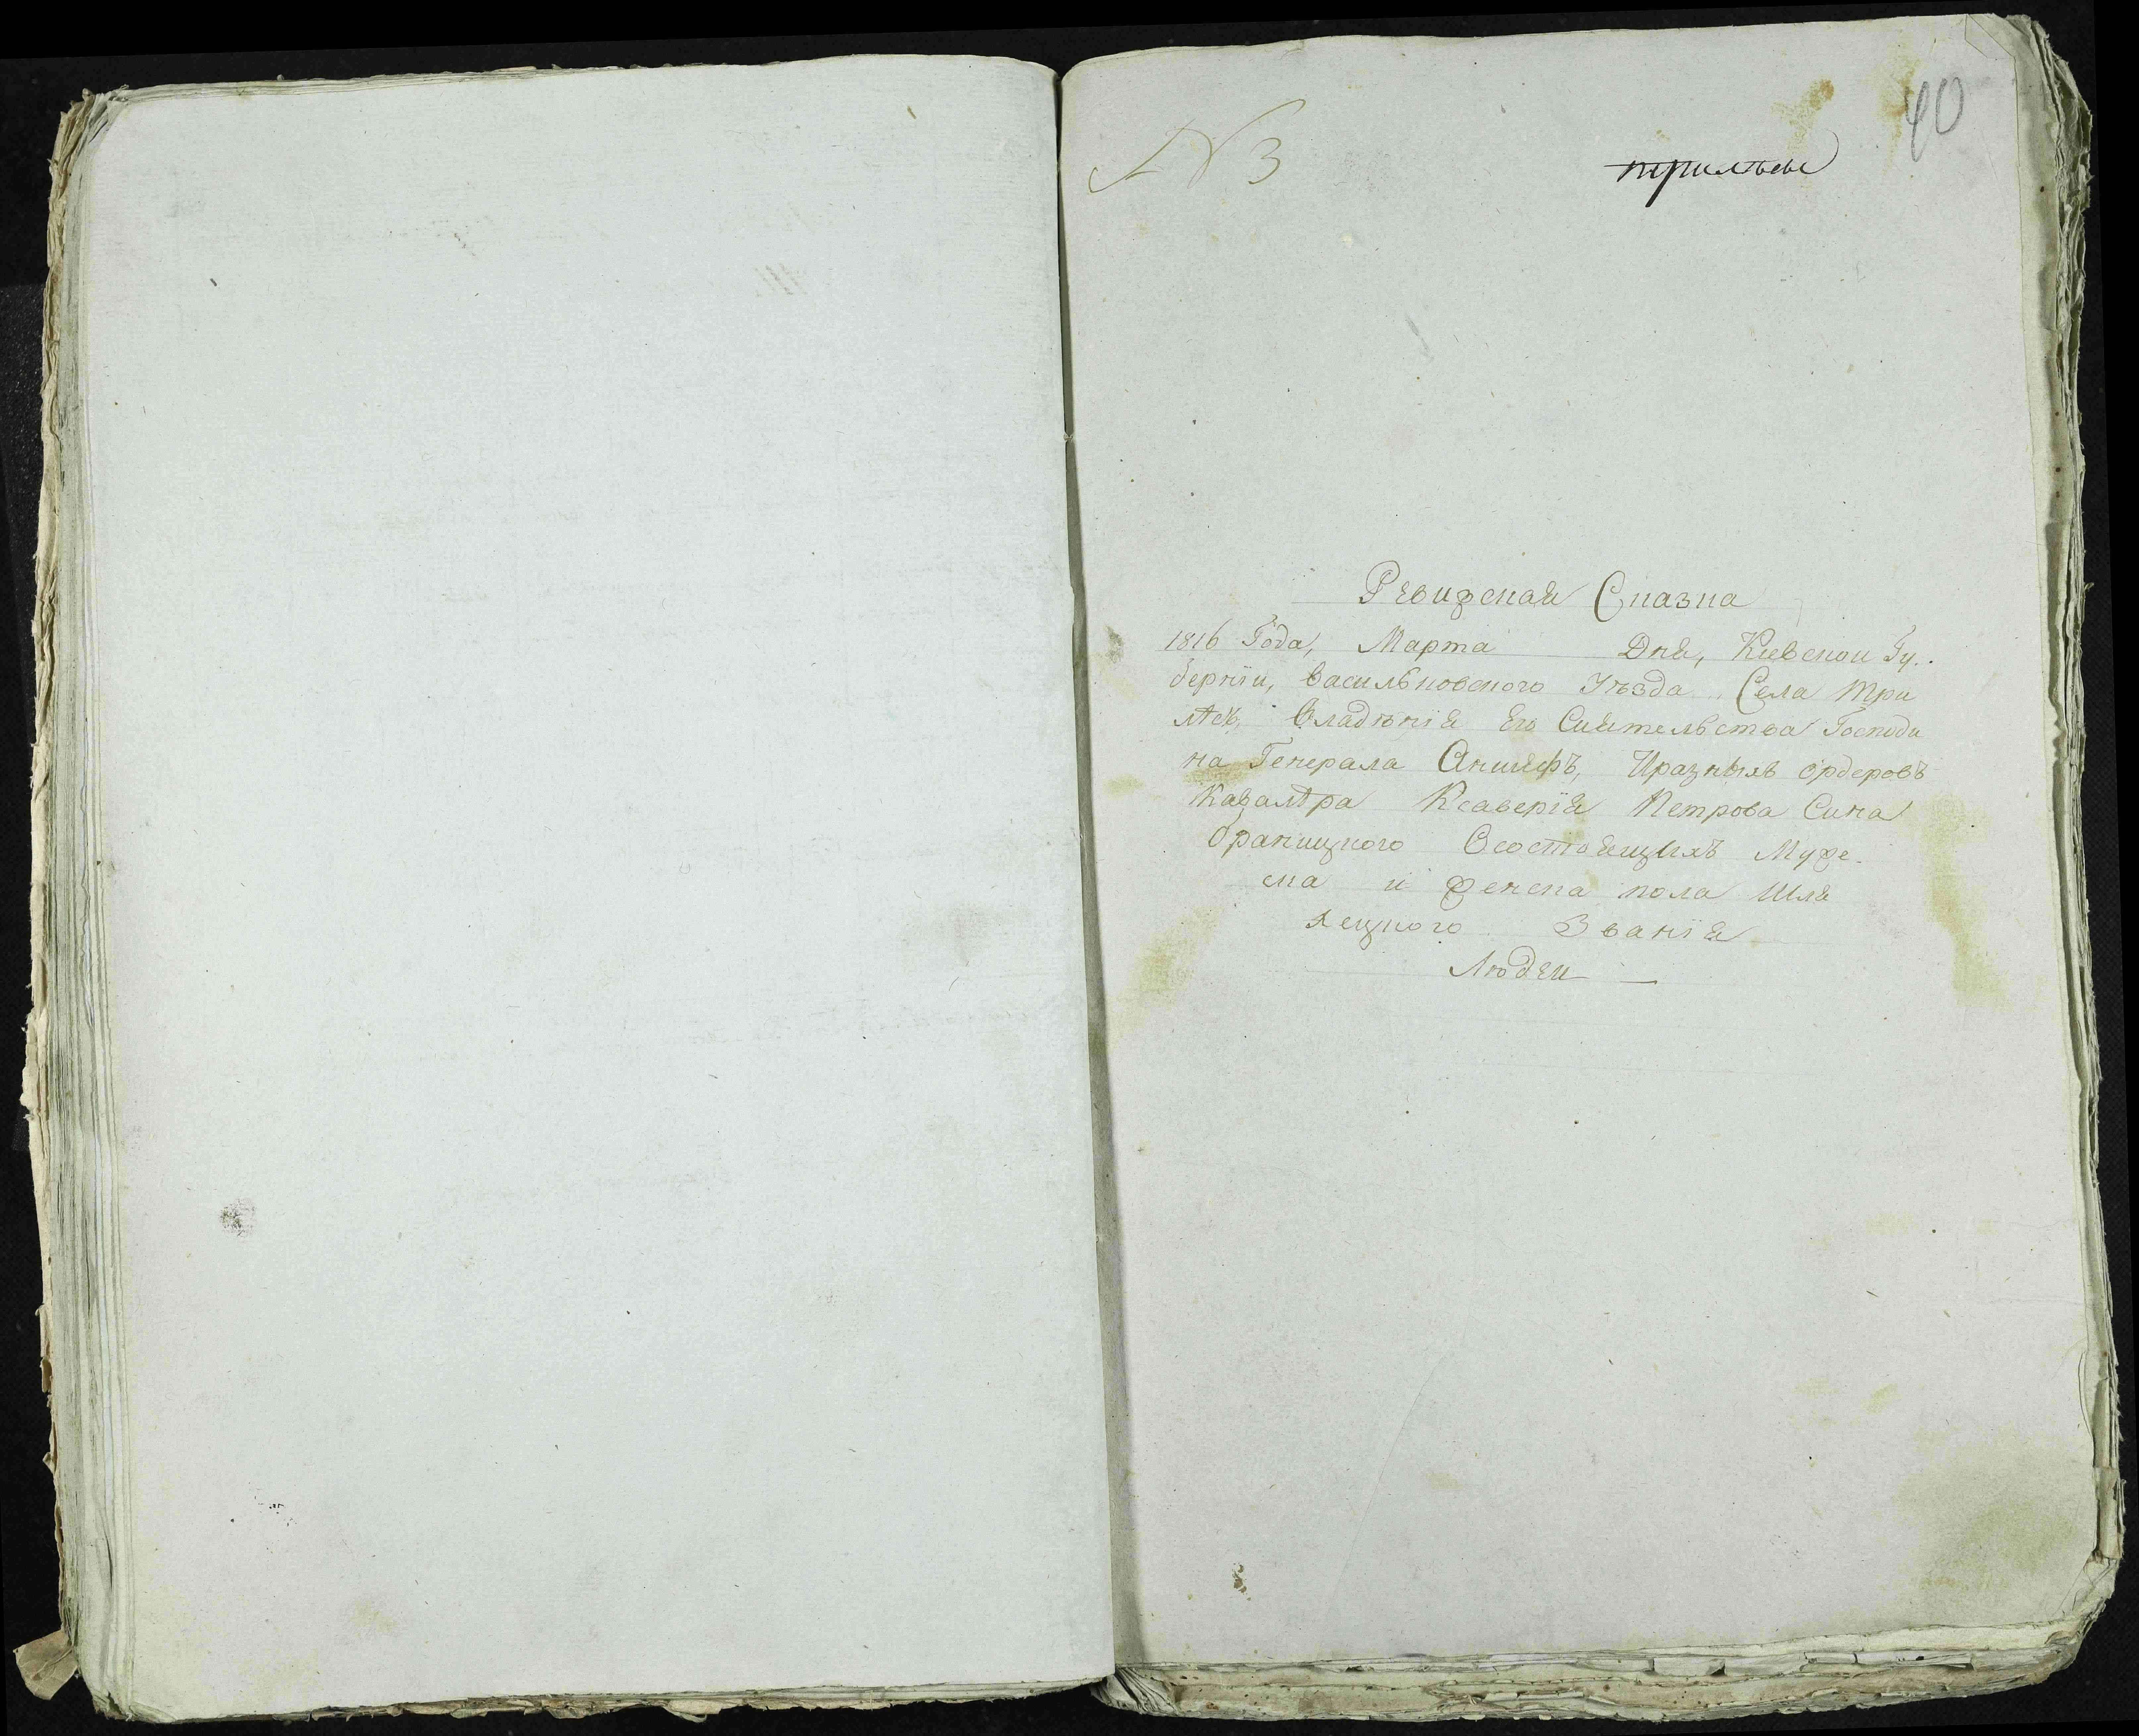 40
№ 3
трилѣсы
Ревизская Сказка
1816 Года, Марта Дня, Киевской Гу-
берніи, Васильковского Уѣзда Села Три
лѣсъ, Владѣнія Его Сиятельства Господи
на Генерала Аншефъ, Иразныхъ Ордеровъ
Кавалѣра Ксаверія Петрова Сина
Браницкого Осостоящихъ Муже-
ска и женска пола Шля
хецкого Званія
Людеи —